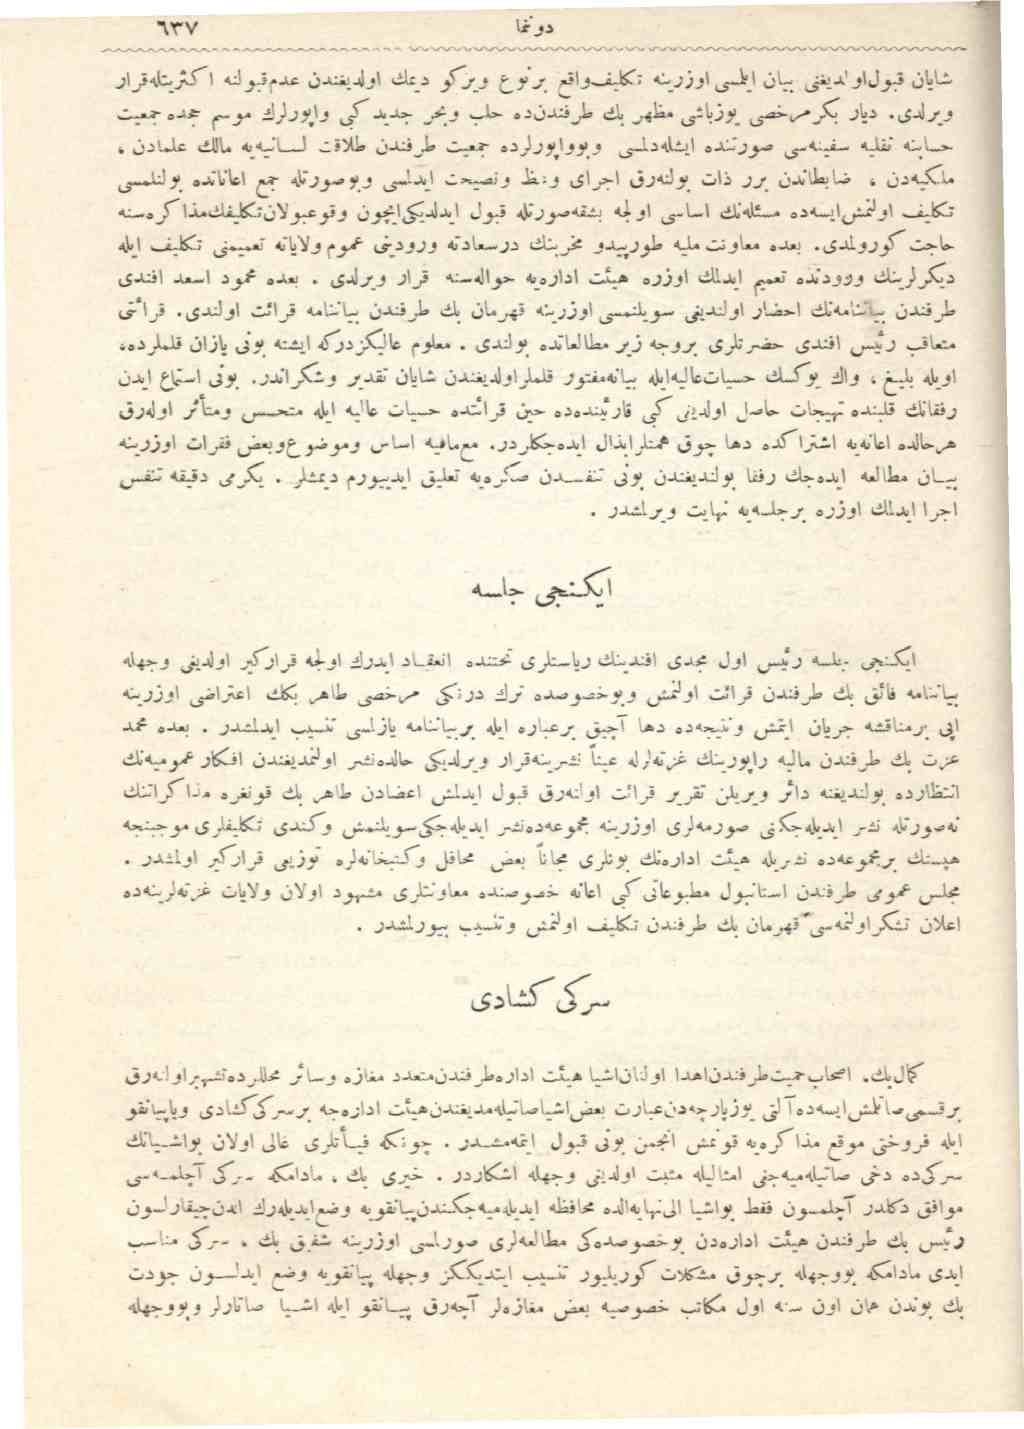 دوننما
٦٣٧
شایان قبول اولدیغنی بیان ایلمسی اوزرینه تکلیف واقع برنوع ویرکو دیمك اولدیغندن عدم قبولنه اکثریتله قرار
ویرلدی. دیار بکر مرخصی یوزباشی مظهر بك طرفندن ده حلب وبحر جدید کبی واپورلرك موسم حجده جمعیت
حسابنه نقلیه سفینه سی صورتنده ایشله دلمسی وبوواپورلرده جمعیت طرفندن طلاقت لسانیه یه مالك علمادن ،
ملکیه دن ، ضابطاندن برر ذات بولنه رق اجرای وعظ ونصیحت ایدلسی وبوصورتله جمع اعاناتده بولنلمسی
تکلیف اولنمش ایسه ده مسئله نك اساسی اولجه بشقه صورتله قبول ایدلدیکی ایچون وقوعبولان تکلیفك مذاکره سنه
حاجت کورولمدی. بعده معاونت ملیه طورپیدو مخربنك درسعادته ورودینی عموم ولایاته تعمیمنی تکلیف ایله
دیکرلرینك ورودنده تعمیم ایدلمك اوزره هیئت اداره یه حواله سنه قرار ویرلدی . بعده محمود اسعد افندی
طرفندن بیاننامه نك احضار اولندیغی سویلنمسی اوزرینه قهرمان بك طرفندن بیاننامه قرائت اولندی. قرائتی
متعاقب رئیس افندی حضرتلری بروجه زیر مطالعاتده بولندی . معلوم عالیکزدرکه ایشته بونی یازان قلملرده،
اویله بلیغ ، واك یوکسك حسیات عالیه ایله بیانه مفتور قلملر اولدیغندن شایان تقدیر وشکراندر. بونی استماع ایدن
رفقانك قلبنده تهیجات حاصل اولدیغی کبی قارئینده ده حین قرائتده حسیات عالیه ایله متحسس ومتأثر اوله رق
هرحالده اعانه یه اشتراکده دها چوق همتلر ابذال ایده جکلردر. مع مافیه اساس وموضوع وبعض فقرات اوزرینه
بیان مطالعه ایده جك رفقا بولندیغندن بونی تنفسدن صکره یه تعلیق ایدییورم دیمشلر . یکرمی دقیقه تنفس
اجرا ایدلمك اوزره برجلسه یه نهایت ویرلمشدر .
ایکنجی جلسه
ایکنجی جلسه رئیس اول مجدی افندینك ریاستلری تحتنده انعقاد ایدرك اولجه قرارکیر اولدیغی وجهله
بیاننامه فائق بك طرفندن قرائت اولنمش وبوخصوصده ترك درنکی مرخصی طاهر بکك اعتراضی اوزرینه
ایی برمناقشه جریان ایتمش ونتیجه ده دها آچیق برعباره ایله بربیاننامه یازلسی تنسیب ایدلمشدر . بعده محمد
عزت بك طرفندن مالیه راپورینك غزته لرله عیناً نشرینه قرار ویرلدیکی حالده نشر اولنمدیغندن افکار عمومیه نك
انتظارده بولندیغنه دائر ویریلن تقریر قرائت اولنه رق قبول ایدلمش اعضادن طاهر بك قونغره مذاکراتنك
نه صورتله نشر ایدیله جکنی صورمه لری اوزرینه مجموعه ده نشر ایدیله جکی سویلنمش وکندی تکلیفلری موجبنجه
هپسنك برمجموعه ده نشریله هیئت اداره نك بونلری مجاناً بعض محافل وکتبخانه لره توزیعی قرارکیر اولمشدر .
مجلس عمومی طرفندن استانبول مطبوعاتی کبی اعانه خصوصنده معاونتلری مشهود اولان ولایات غزته لرینه ده
اعلان تشکر اولنمه سی قهرمان بك طرفندن تکلیف اولنمش وتنسیب بیورلمشدر .
سرکی کشادی
کمال بك. اصحاب حمیت طرفندن اهدا اولنان اشیا هیئت اداره طرفندن متعدد مغازه وسائر محللرده تشهیر اولنه رق
برقسمی صاتلمش ایسه ده آلتی یوز پارچه دن عبارت بعض اشیا صاتیله مدیغندن هیئت اداره جه برسرکی کشادی ویاپیانقو
ایله فروختی موقع مذاکره یه قونمش انجمن بونی قبول ایتمه مشدر . چونکه فیأتلری غالی اولان بواشیانك
سرکی ده دخی صاتیله میه جغی امثالیله مثبت اولدیغی وجهله اشکاردر . خیری بك ، مادامکه سرکی آچلمه سی
موافق دکلدر آچلمسون فقط بواشیا الی نهایه الده محافظه ایدیله میه جکندن پیانقویه وضع ایدیله رك الدن چیقارلسون
رئیس بك طرفندن هیئت اداره دن بوخصوصده کی مطالعه لری صورلمسی اوزرینه شفیق بك ، سرکی مناسب
ایدی مادامکه بووجهله برچوق مشکلات کوریلیور تنسیب ایتدیککز وجهله پیانقویه وضع ایدلسون جودت
بك بوندن همان اون سنه اول مکاتب خصوصیه بعض مغازه لر آچه رق پیانقو ایله اشیا صاتارلر وبووجهله